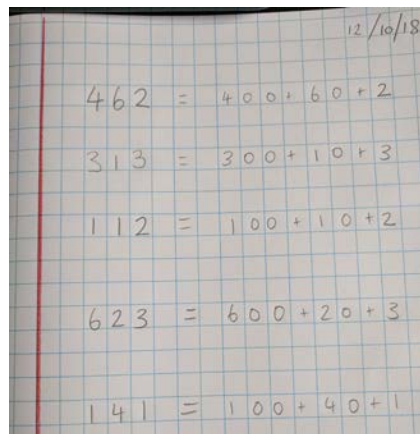 12/10/18
462 = 400 + 60 + 2
313 = 300 + 10 + 3
112 = 100 + 10 + 2
623 = 600 + 20 + 3
141 = 100 + 40 + 1